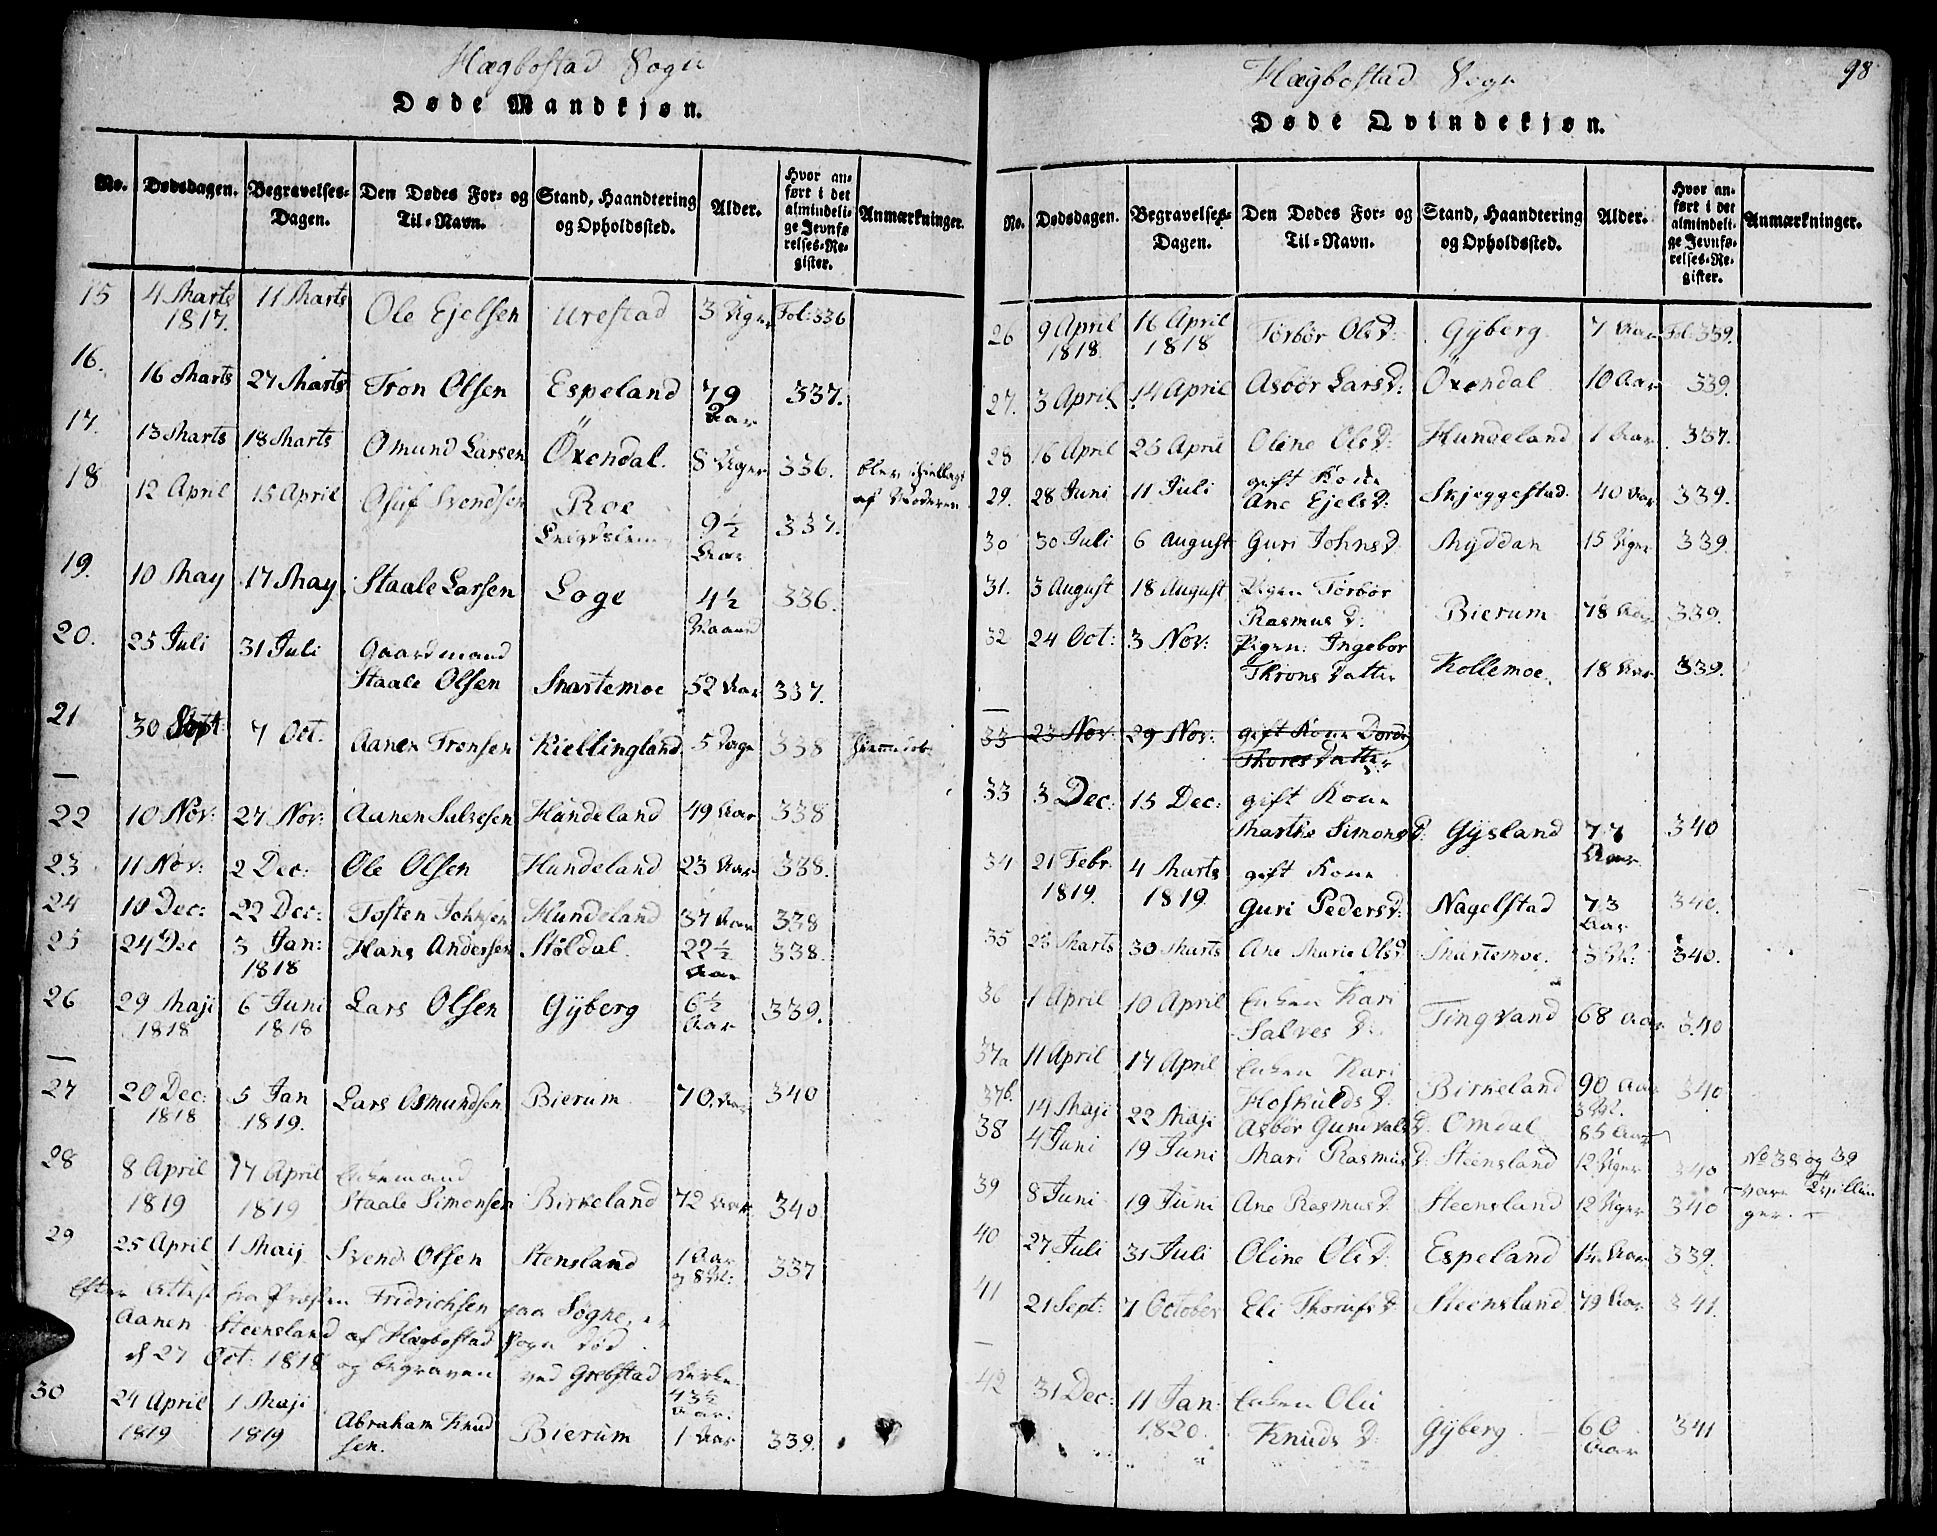 Hægbostad Sogn
Døde Mandkjøn.
No. Dødsdagen. Begravelses-Dagen. Den Dødes For- og Til-Navn. Stand, Haandtering og Opholdssted. Alder. Hvor anført i det almindelige Jevnførelses-Register. Anmærkninger.
15 4 Marts 1817. 11 Marts Ole Ejelsen Urestad 3 Uger Fol: 336
16. 16 Marts 27 Marts Tron Olsen Espeland 79 Aar 337.
17. 13 Marts 18 Marts Omund Larsen Öxendal. 8 Uger 336. blev ihjellagt af Moderen
18 12 April 15 April Osuf Svendsen Roe 9½ Aar 337.
19. 10 May 17 May Staale Larsen Loge 4½ Maaned 336.
20. 25 Juli 31 Juli Gaardmand
Staale Olsen Snartemoe 52 Aar 337.
21 30 Sept: 7 Oct: Aanen Tronsen Kiellingland 5 Dage 338
22 10 Nov: 27 Nov: Aanen Salvesen Hundeland 49 Aar 338
23 11 Nov: 2 Dec: Ole Olsen Hundeland 23 Aar 338.
24 10 Dec: 22 Dec: Tosten Johnsen Hundeland 37 Aar 338
25 24 Dec 3 Jan: 1818 Hans Andersen Støldal. 22½ Aar 338.
26 29 Maji 1818 6 Juni 1818 Lars Olsen Gÿberg 6½ Aar 339.
27 20 Dec: 1818 5 Jan 1819. Lars Osmundsen Bierum 70. Aar 340
28 8 April 1819 17 April 1819 Enkemand
Staale Simonsen Birkeland 72 Aar 340
29 25 April 1 Maij Svend Olsen Stensland 1 Aar og 8 M: 337
Efter Attest fra Præsten Fridrichsen paa Søgne, er
Aanen Steensland af Hægbostad Sogn död
d 27 Oct: 1818 og begraven ved Grebstad Kirke.
43½ Aar.
30 24 April 1819 1 Maji 1819 Abraham Knudsen. Bierum 1 Aar 339.
Hægbostad Sogn
98
Døde Qvindekjøn.
No. Dødsdagen. Begravelses-Dagen. Den Dødes For- og Til-Navn. Stand, Haandtering og Opholdssted. Alder. Hvor anført i det almindelige Jevnførelses-Register. Anmærkninger.
26 9 April 1818 16 April 1818 Torbør Ols D: Gÿberg 7 Aar Fol: 339.
27. 3 April 14 April Asbör Lars D: Öxendal 10 Aar 339.
28 16 April 25 April Oline Ols D: Hundeland 1 Aar 337.
29. 28 Juni 11 Juli gift Kone
Ane Ejels D: Skjeggestad. 40 Aar 339.
30 30 Juli 6 August Guri Johns D Mÿddan 15 Uger 339.
31. 3 August 18 August Pigen Torbør
Rasmus D: Bierum 78 Aar 339.
32 24 Oct: 3 Nov: Pigen: Ingebor
Throns Datter Kollemoe. 18 Aar 339.
33 23 Nov 29 Nov: gift Kone Dorde
Thores Datter
33 3 Dec: 15 Dec: gift Kone
Marthe Simons D: Gÿsland 77 Aar 340
34 21 Febr. 1819. 4 Marts 1819 gift Kone
Guri Peders D: Nagelstad 73 Aar 340.
35 23 Marts 30 Marts Ane Marie Ols D Snartemoe. 3 M: 340.
36 1 April 10 April Enken Kari
Salves D: Tingvand 68 Aar 340
37a 11 April 17 April Enken Kari
Hoskulds D. Birkeland 90 Aar 340
37b. 14 Maji 22 Maji Asbör Gunvals D: Omdal
38 4 Juni 19 Juni Mari Rasmus D: Steensland 12 Uger 340 No 38 og 39
vare Tvillinger.
39 8 Juni 19 Juni Ane Rasmus D. Steensland 12 Uger 340
40 27 Juli 31 Juli Oline Ols D. Espeland 14 Aar 339.
41 21 Sept: 7 October Eli Thorufs D. Steensland 79 Aar 341.
42 31 Dec: 11 Jan: 1820. Enken Oli
Knuds D. Gÿberg 60 Aar 341